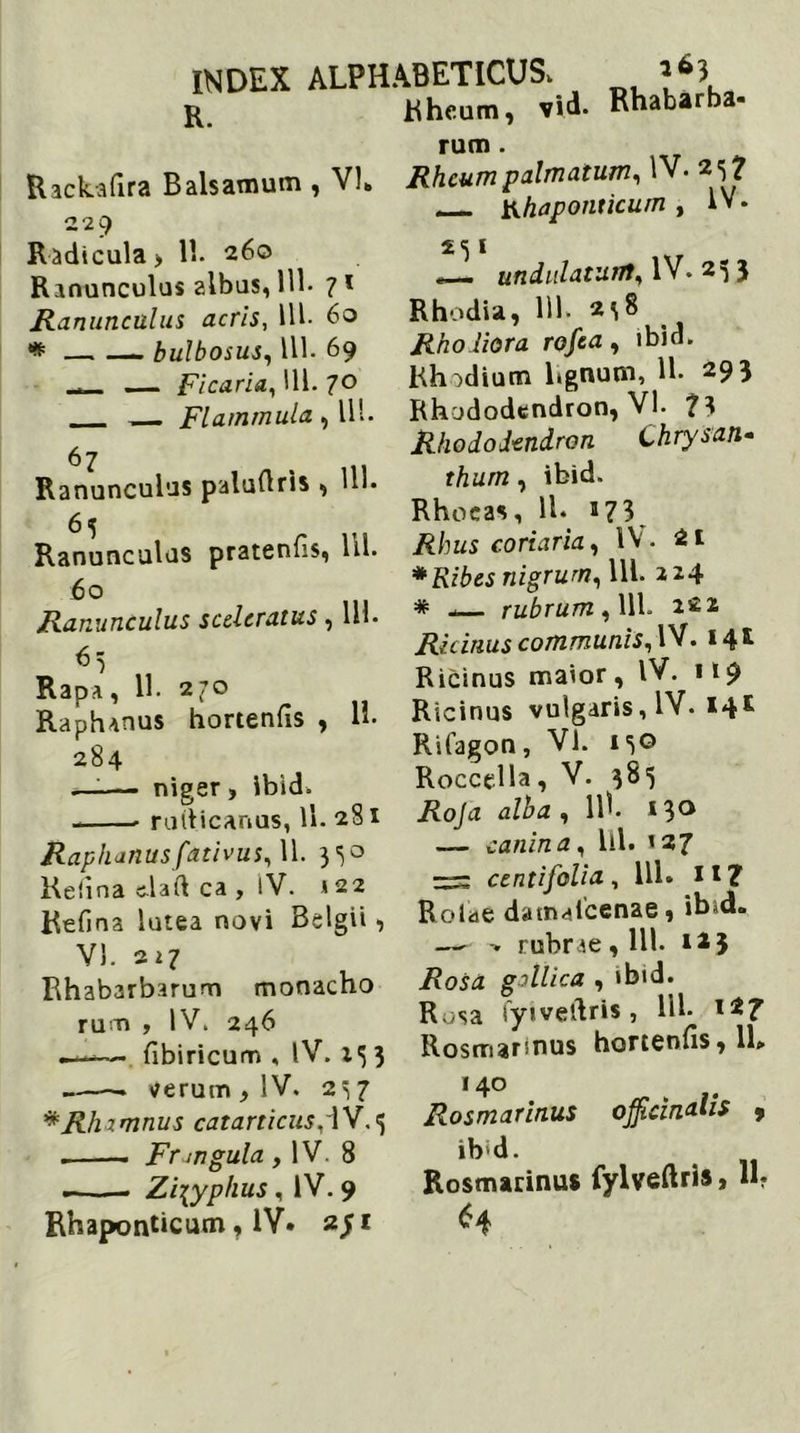 INDEX ALPHABETICUS. 263
R.
Rackaſira Balsamum, VI.
229
Radicula, II. 260
Ranunculus albus, III. 71
Ranunculus acris, III. 60
* — — bulbosus, III. 69
— — Ficaria, III. 70
— — Flammula, III.
67
Ranunculus paluſtris, III.
65
Ranunculus pratenſis, III.
60
Ranunculus sceleratus, III.
65
Rapa, II. 270
Raphanus hortenſis, II.
284
—— niger, ibid.
—— ruſticanus, II. 281
Raphanus ſativus, II. 350
Reſina elaſt ca, IV. 122
Reſina lutea novi Belgii,
VI. 217
Rhabarbarum monacho
rum, IV. 246
—— ſibiricum, IV. 253
—— verum, IV. 257
*Rhamnus catarticus, IV. 5
—— Frangula, IV. 8
—— Ziзyphus, IV. 9
Rhaponticum, IV. 251
Rheum, vid. Rhabarba-
rum.
Rheum palmatum, IV. 257
— Rhaponticum, IV.
251
— undulatum, IV. 253
Rhodia, III. 258
Rhodiora roſea, ibid.
Rhodium lignum, II. 293
Rhododendron, VI. 73
Rhododendron Chrysan-
thum, ibid.
Rhoeas, II. 173
Rhus coriaria, IV. 21
*Ribes nigrum, III. 224
* — rubrum, III. 222
Ricinus communis, IV. 141
Ricinus maior, IV. 119
Ricinus vulgaris, IV. 141
Riſagon, VI. 150
Roccella, V. 385
Roſa alba, III. 130
— canina, III. 127
— centifolia, III. 117
Roſae damaſcenae, ibid.
— - rubrae, III. 123
Rosa gallica, ibid.
Rosa ſylveſtris, III. 127
Rosmarinus hortenſis, II.
140
Rosmarinus officinalis,
ibid.
Rosmarinus ſylveſtris, II.
64